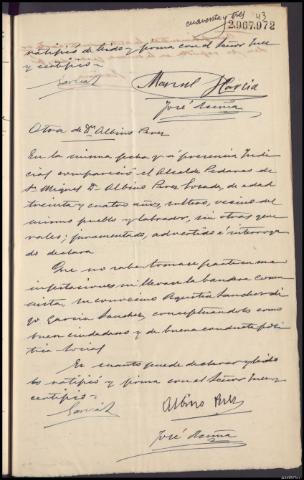 cuarenta y tres 43
2.967.972
ratificó de leido y firma con el Señor Juez
y certifico=
Garcia
Manuel Garcia
José Acuña
Otra de Dn Albino Perez
En la misma fecha y á presencia Judi
cial compareció el Alcalde Pedaneo de
Sn Miguel Dn Albino Perez Losada, de edad
treinta y cuatro años, soltero, vecino del
mismo pueblo y labrador, sin otras gene
rales; juramentado, advertido é interroga
do declara
Que no sabe tomase parte en ma
nifestaciones ni llevase la bandera comu
nista, su convecino
Garcia Sanchez, conceptuandolo como
buen ciudadano y de buena conducta poli
tica social
En cuanto puede declarar y leido
lo ratificó y firma con el Señor Juez,
certifico=
Garcia
Albino Perez
José Acuña